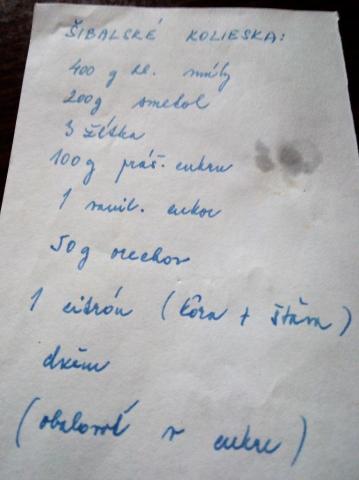 ŠIBALSKÉ KOLIESKA:
400 g hl. múky
200g smetol
3 žĺtka
100g práš. cukru
1 vanil. cukor
50g orechov
1 citrón (kôra + šťava)
džem
(obalovať v cukre)